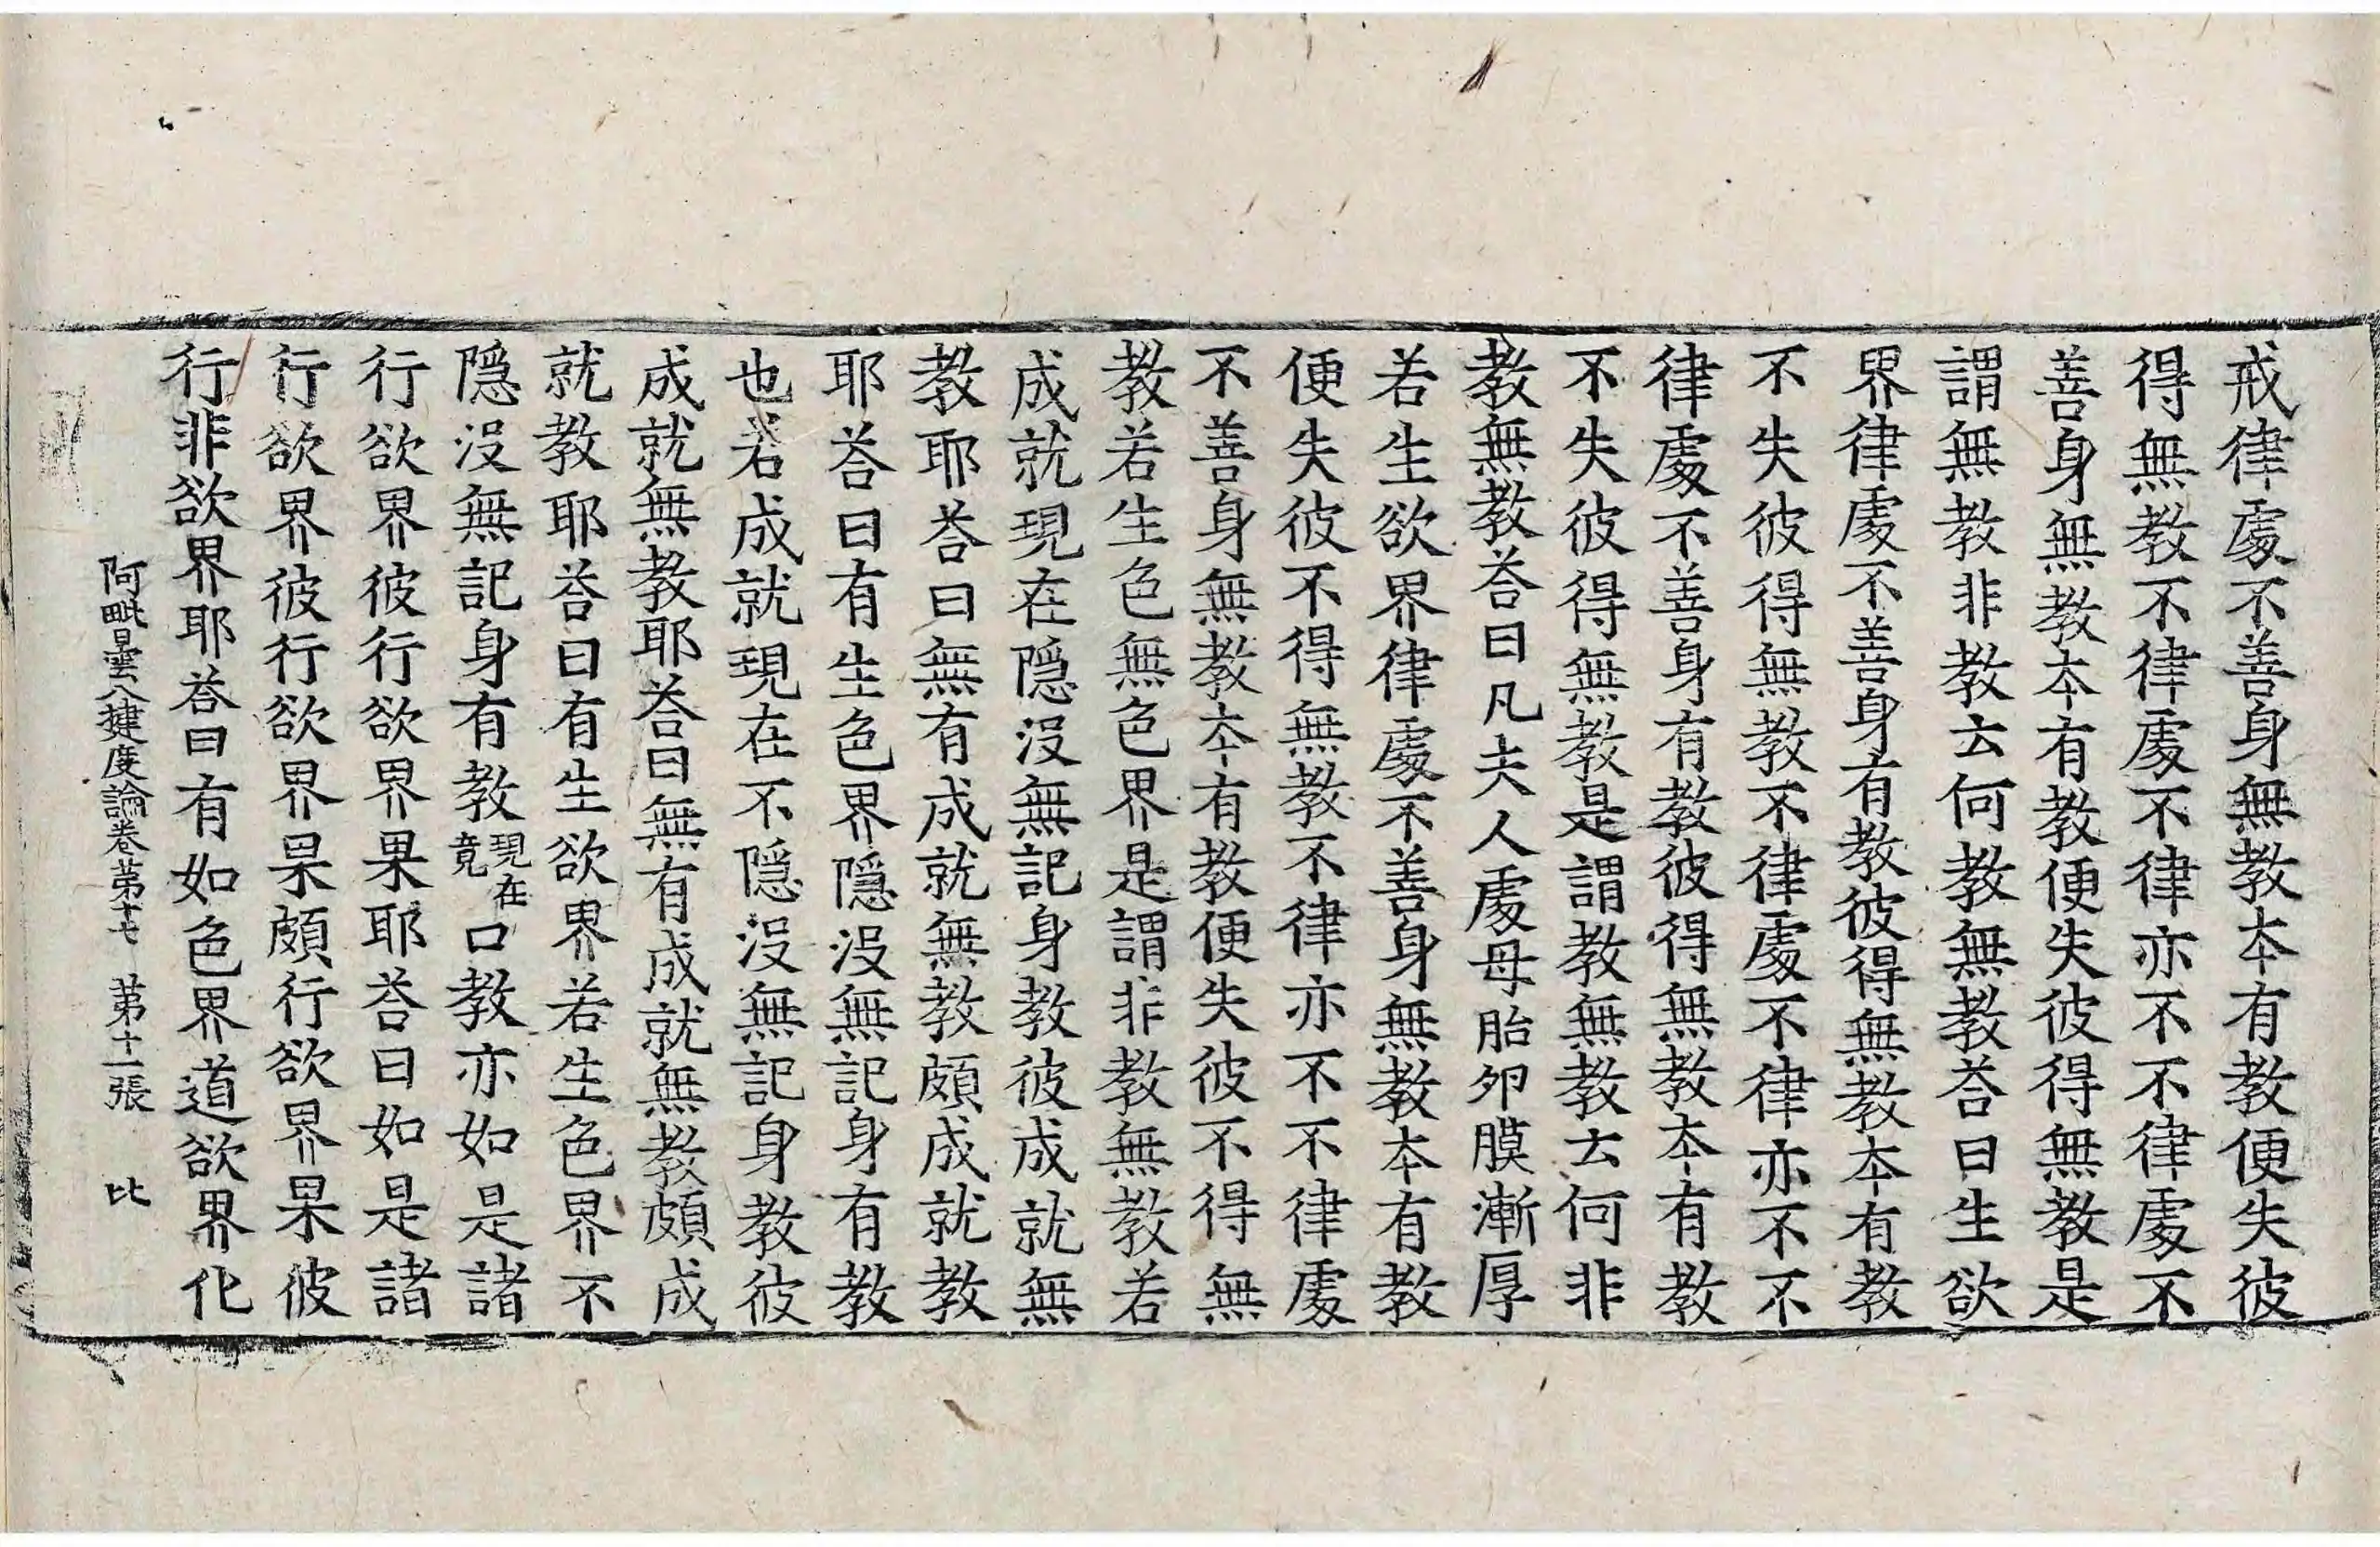 戒律處不善身無教本有教便失彼
得無教不律處不律亦不不律處不
善身無教本有教便失彼得無教是
謂無教非教云何教無教荅曰生欲
界律處不善身有教彼得無教本有教
不失彼得無教不律處不律亦不不
律處不善身有教彼得無教本有教
不失彼得無教是謂教無教云何非
教無教荅曰凡夫人處母胎卵膜漸厚
若生欲界律處不善身無教本有教
便失彼不得無教不律亦不不律處
不善身無教本有教便失彼不得無
教若生色無色界是謂非教無教若
成就現在隱沒無記身教彼成就無
教耶荅曰無有成就無教頗成就教
耶荅曰有生色界隱沒無記身有教
也若成就現在不隱沒無記身教彼
成就無教耶荅曰無有成就無教頗成
就教耶荅曰有生欲界若生色界不
隱沒無記身有教現在竟口教亦如是諸
行欲界彼行欲界果耶荅曰如是諸
行欲界彼行欲界果頗行欲界果彼
行非欲界耶荅曰有如色界道欲界化
阿毗曇八揵度論卷苐十七 苐十一張 比